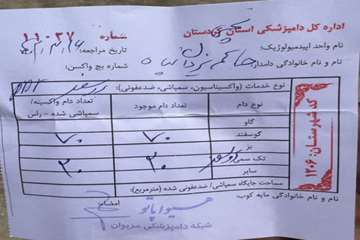 اداره کل دامپزشکی استان کردستان
شماره ۱۱۰۲۷
نام واحد اپیدمیولوژیک:
تاریخ مراجعه:
نام و نام خانوادگی دامدار
شماره بچ واکسن:
نوع خدمات (واکسیناسیون، سمپاشی، ضدعفونی):
نوع دام
تعداد دام موجود
تعداد دام واکسینه/ سمپاشی شده - راس
گاو
گوسفند
۷۰
۷۰
بز
۳۰
۳۰
تک سمی
سایر
مساحت جایگاه سمپاشی/ ضدعفونی شده (مترمربع):
نام و نام خانوادگی مایه کوب
امضاء
شبکه دامپزشکی مریوان
کد شهرستان: ۱۲۰۶